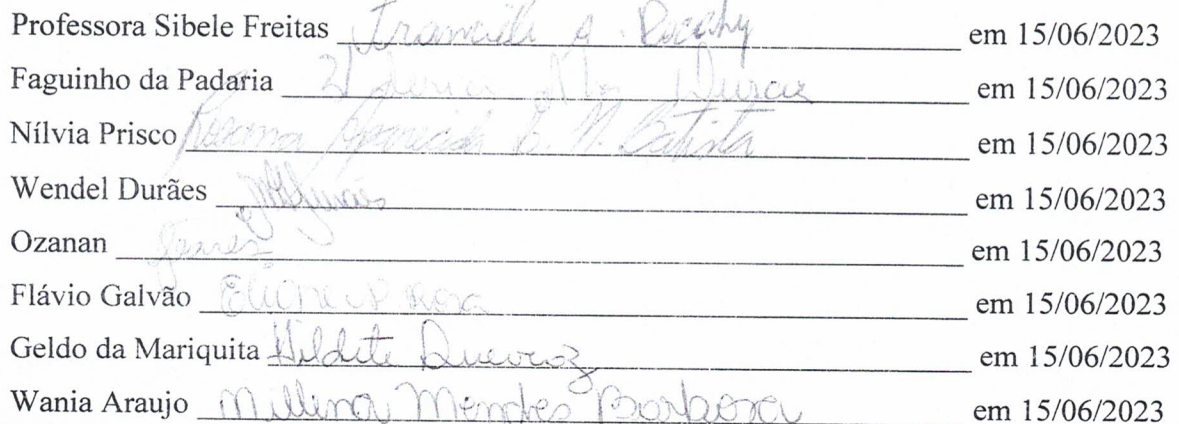 Professora Sibele Freitas A. em 15/06/2023
Faguinho da Padaria em 15/06/2023
Nílvia Prisco Rosana Aparecida B. N. Batista em 15/06/2023
Wendel Durães em 15/06/2023
Ozanan em 15/06/2023
Flávio Galvão em 15/06/2023
Geldo da Mariquita Hildete Queiroz em 15/06/2023
Wania Araujo Millina Mendes Barbosa em 15/06/2023